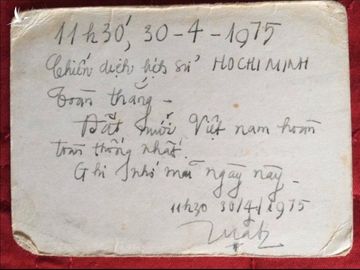 11h30', 30-4-1975
Chiến dịch lịch sử HO CHI MINH
toàn thắng -
Đất nước Việt nam hoàn
toàn thống nhất.
Ghi nhớ mãi ngày này.
11h30 30/4/1975